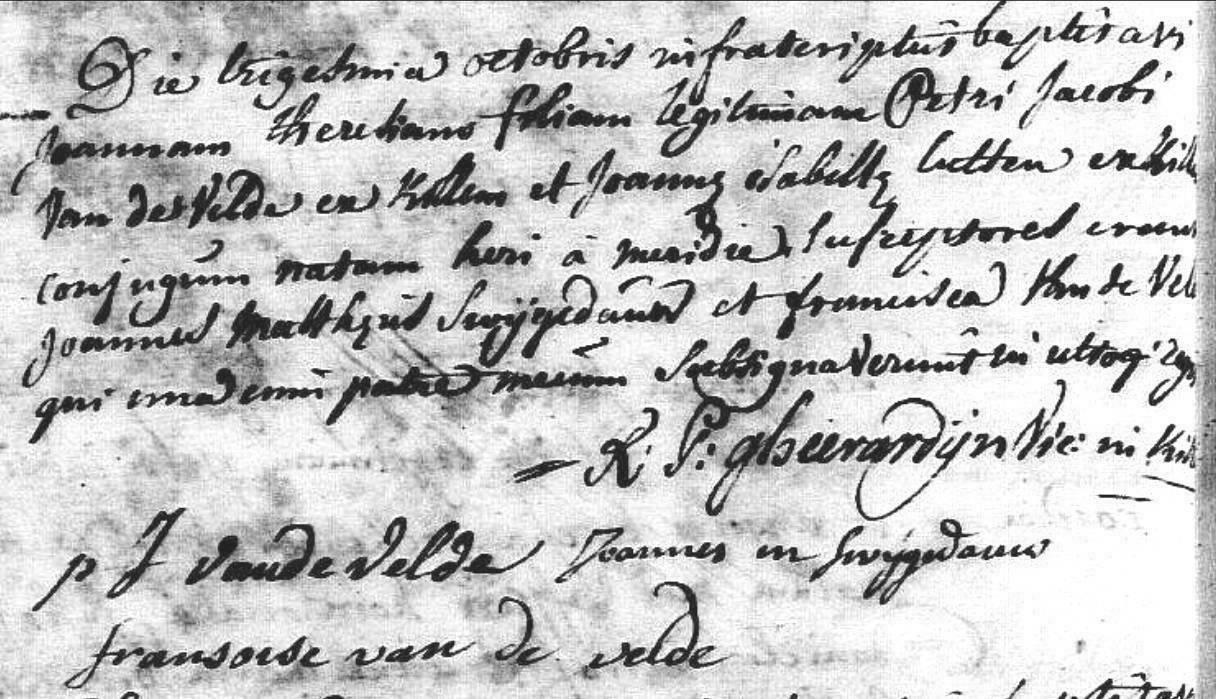 Die trigesima octobris infrascriptus baptisavi
Joannam theresiam filiam legitimam Petri Jacobi
Van de Velde ex Killem et Joannæ isabillæ lutten ex Kill
conjugum natam heri à meridie, susceptores erunt
Joannes Matthæus Swÿgedauw et francisca Van de Vel
qui una cum patre mecum subsignaverunt in utroq:
R: P: gheerardÿn Vic: in Kil
p J Vande Velde Joannes m Swÿgedauw
fransoise van de velde